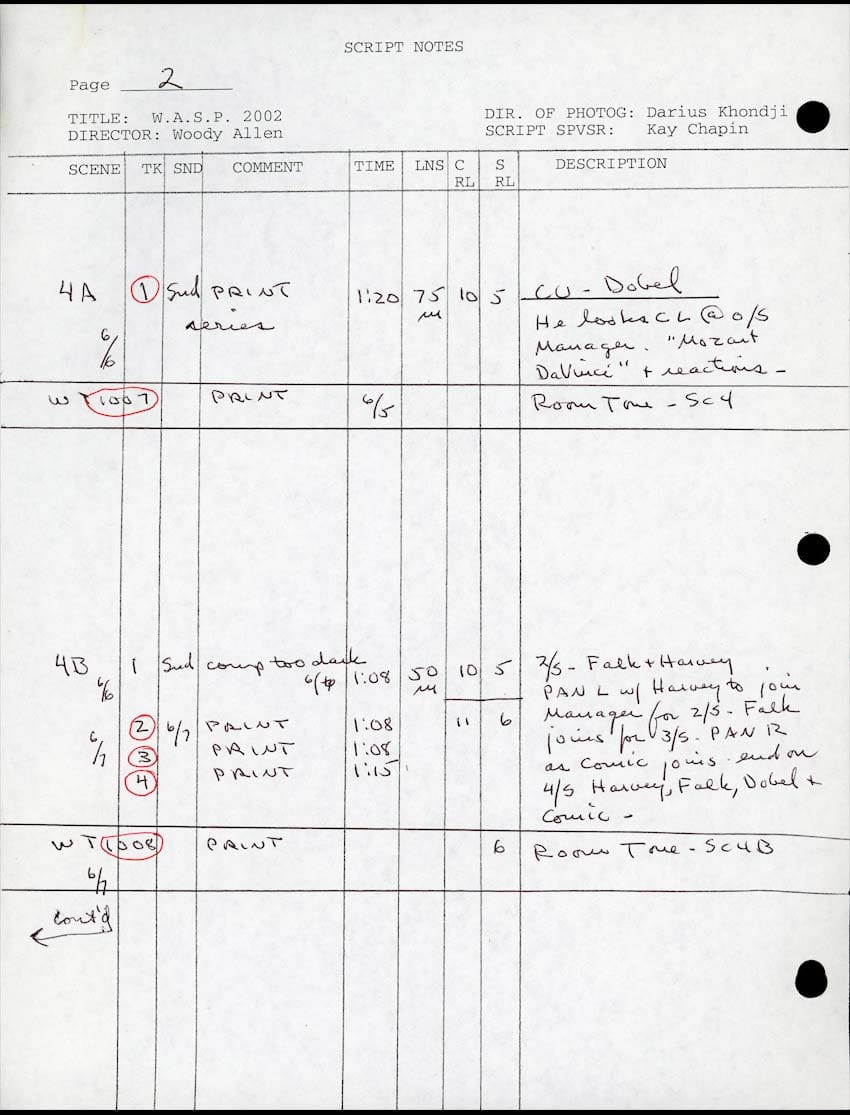 SCRIPT NOTES
Page 2
TITLE: W.A.S.P. 2002 DIR. OF PHOTOG: Darius Khondji
DIRECTOR: Woody Allen SCRIPT SPVSR: Kay Chapin
SCENE TK SND COMMENT TIME LNS C RL S RL DESCRIPTION
4A 1 Snd PRINT 1:20 75 10 5 CU - Dobel
series He looks CL @ o/s
6/6 Manager. "Mozart
DaVinci" + reactions -
WT 1007 PRINT 6/5 Room Tone - Sc 4
4B 1 Snd comp too dark 1:08 50 10 5 2/S - Falk + Harvey
6/6 PAN L w/ Harvey to join
2 6/7 PRINT 1:08 11 6 Manager for 2/S. Falk
6/7 3 PRINT 1:08 joins for 3/S. PAN R
4 PRINT 1:15 as Comic joins. end on
4/S Harvey, Falk, Dobel +
Comic -
WT 1008 PRINT 6 Room Tone - Sc 4B
6/7
Cont'd